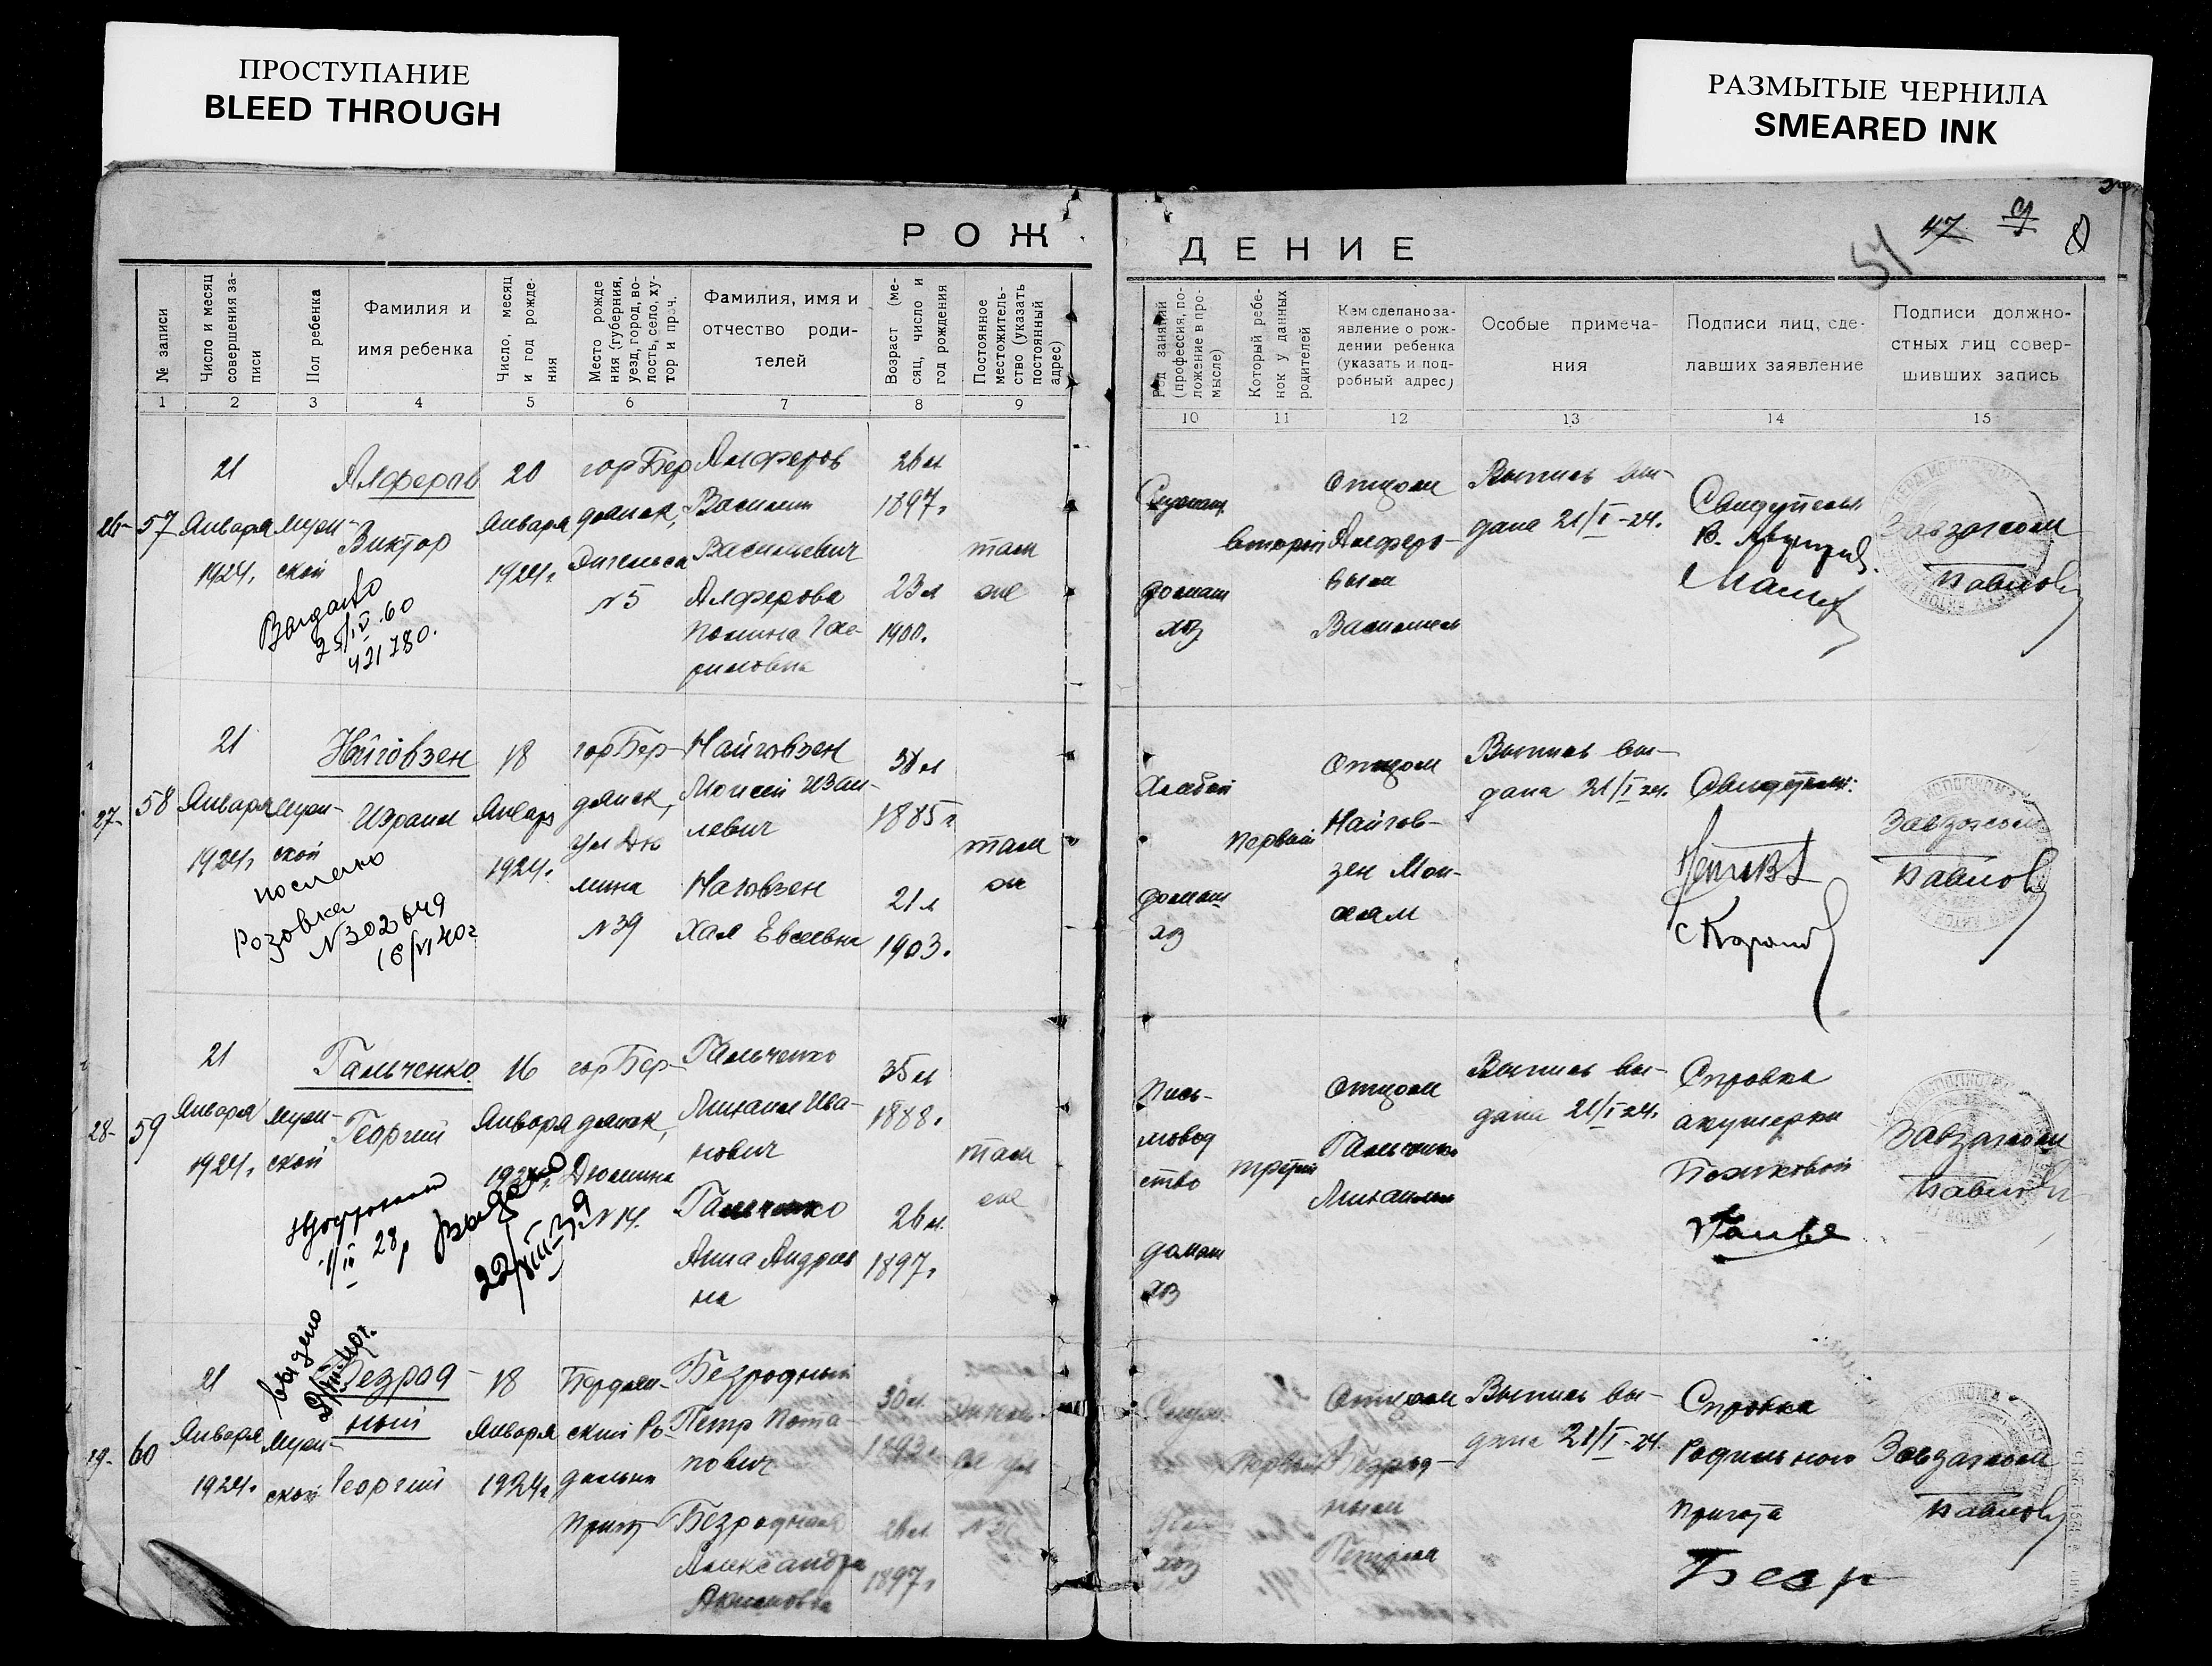 ПРОСТУПАНИЕ
BLEED THROUGH
РАЗМЫТЫЕ ЧЕРНИЛА
SMEARED INK
РОЖ
ДЕНИЕ
51 47
№ записи
Число и месяц
совершения за-
писи
Пол ребенка
Фамилия и
имя ребенка
Число, месяц
и год рожде-
ния
Место рожде
ния (губерния,
уезд, город, во-
лость, село, ху-
тор и проч.
Фамилия, имя и
отчество роди-
телей
Возраст (ме-
сяц, число и
год рождения
Постоянное
местожитель-
ство (указать
постоянный
адрес)
Род занятий
(профессия, по-
ложение в про-
мысле)
Который ребе-
нок у данных
родителей
Кем сделано за-
явление о рож-
дении ребенка
(указать и под-
робный адрес)
Особые примеча-
ния
Подписи лиц, сде-
лавших заявление
Подписи должно-
стных лиц совер-
шивших запись
1 2 3 4 5 6 7 8 9
10 11 12 13 14 15
26- 57
21
Января
1924г.
муж-
ской
Алферов
Виктор
Выдано
25/IV.60
421780.
20
Января
1924г.
гор Бер
дянск,
Энгельса
№5
Алферов
Василий
Васильевич
Алферова
Полина Гав-
риловна
26 л
1897г
23 л
1900г.
там
же
домаш
хоз
второй
Отцом
Алферо-
вым
Василием
Выпись вы-
дана 21/I-24.
Свидетели
Завзагсом
Павлов
27- 58
21
Января
1924г.
муж-
ской
Найговзен
Израил
Розовка
N302649
16/VI 40г
18
Январь
1924г.
гор Бер-
дянск,
ул Дю
мина
№39
Найговзен
Моисей Изаи-
левич
Наговзен
Хая Евсеевна
38 л
1885г
21 л
1903г.
там
же
домаш
хоз
первый
Отцом
Найгов-
зен Мои-
сеем
Выпись вы-
дана 21/I 24.
Свидетели:
Завзагсом
Павлов
28- 59
21
Января
1924г.
муж-
ской
Гальченко
Георгий
1/IV 28г
Выдано
22/VIII-39
16
Января
1924г.
гор Бер-
дянск,
Дюмина
№ 14.
Гальченко
Михаил Ива-
нович
Гальченко
Анна Андреев
на
35 л
1888г.
26 л.
1897г.
там
же
Пись-
мовод
ство
домаш
хоз
третий
Отцом
Гальченко
Михаилом
Выпись вы-
дана 21/I-24.
Справка
акушерки
Завзагсом
Павлов
60
21
Января
1924г.
муж-
ской
выдано
Безрод-
ный
Георгий
18
Января
1924г
Бердян-
ский Ро-
дильн
приют
Безродный
Петр Пота-
пович
Безродная
Александра
Акимовна
30 л.
1893г.
26 л.
1897г.
хоз
первый
Отцом
Безрод-
ным
Петром
Выпись вы-
дана 21/I-24.
Справка
Родильного
приюта
Безр
Завзагсом
Павлов